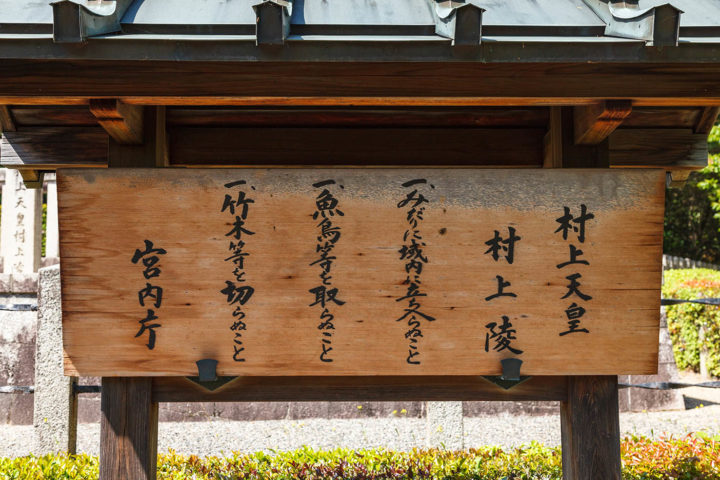 村上天皇
村上陵
一、みだりに域内に立入らぬこと
一、魚鳥等を取らぬこと
一、竹木等を切らぬこと
宮内庁
天皇村上陵